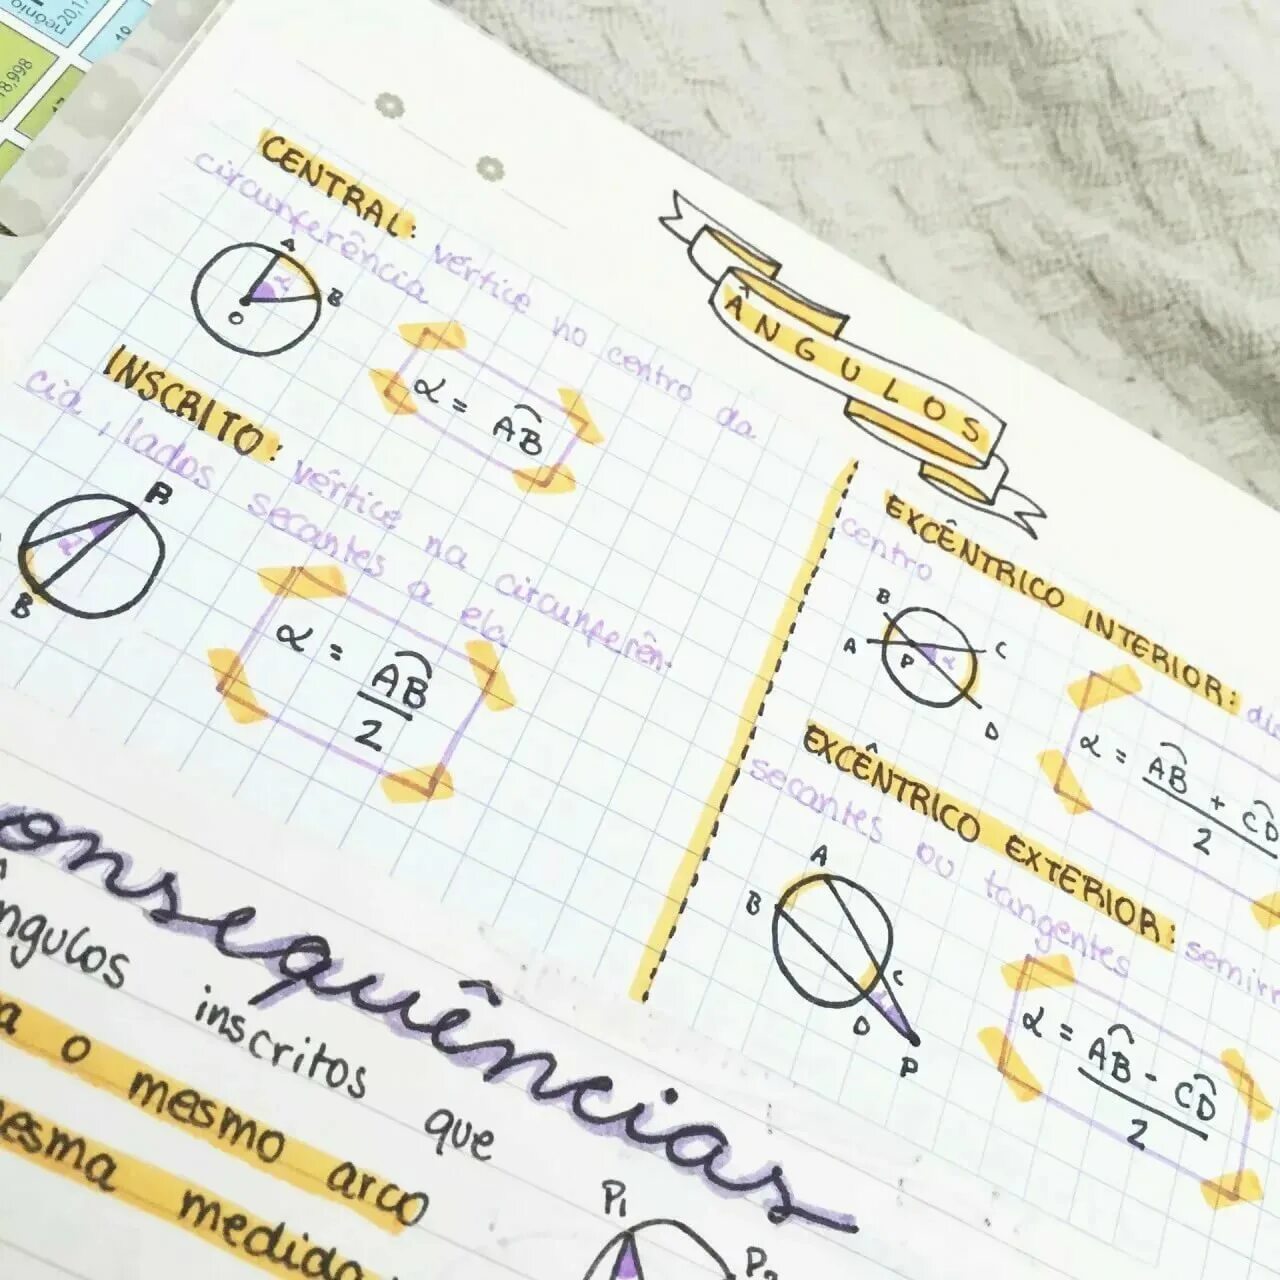 neônio
20,1
18,998
ÂNGULOS
CENTRAL: vértice no centro da
circunferência
A
α
B
O
α = AB
INSCRITO: vértice na circunferên-
cia, lados secantes a ela
α
B
α = AB
2
EXCÊNTRICO INTERIOR:
centro
B
A
C
P
α
D
α = AB + CD
2
EXCÊNTRICO EXTERIOR:
secantes ou tangentes
A
B
C
D
P
α = AB - CD
2
onsequências
ngulos inscritos que
a o mesmo arco
esma medida
P1
P2